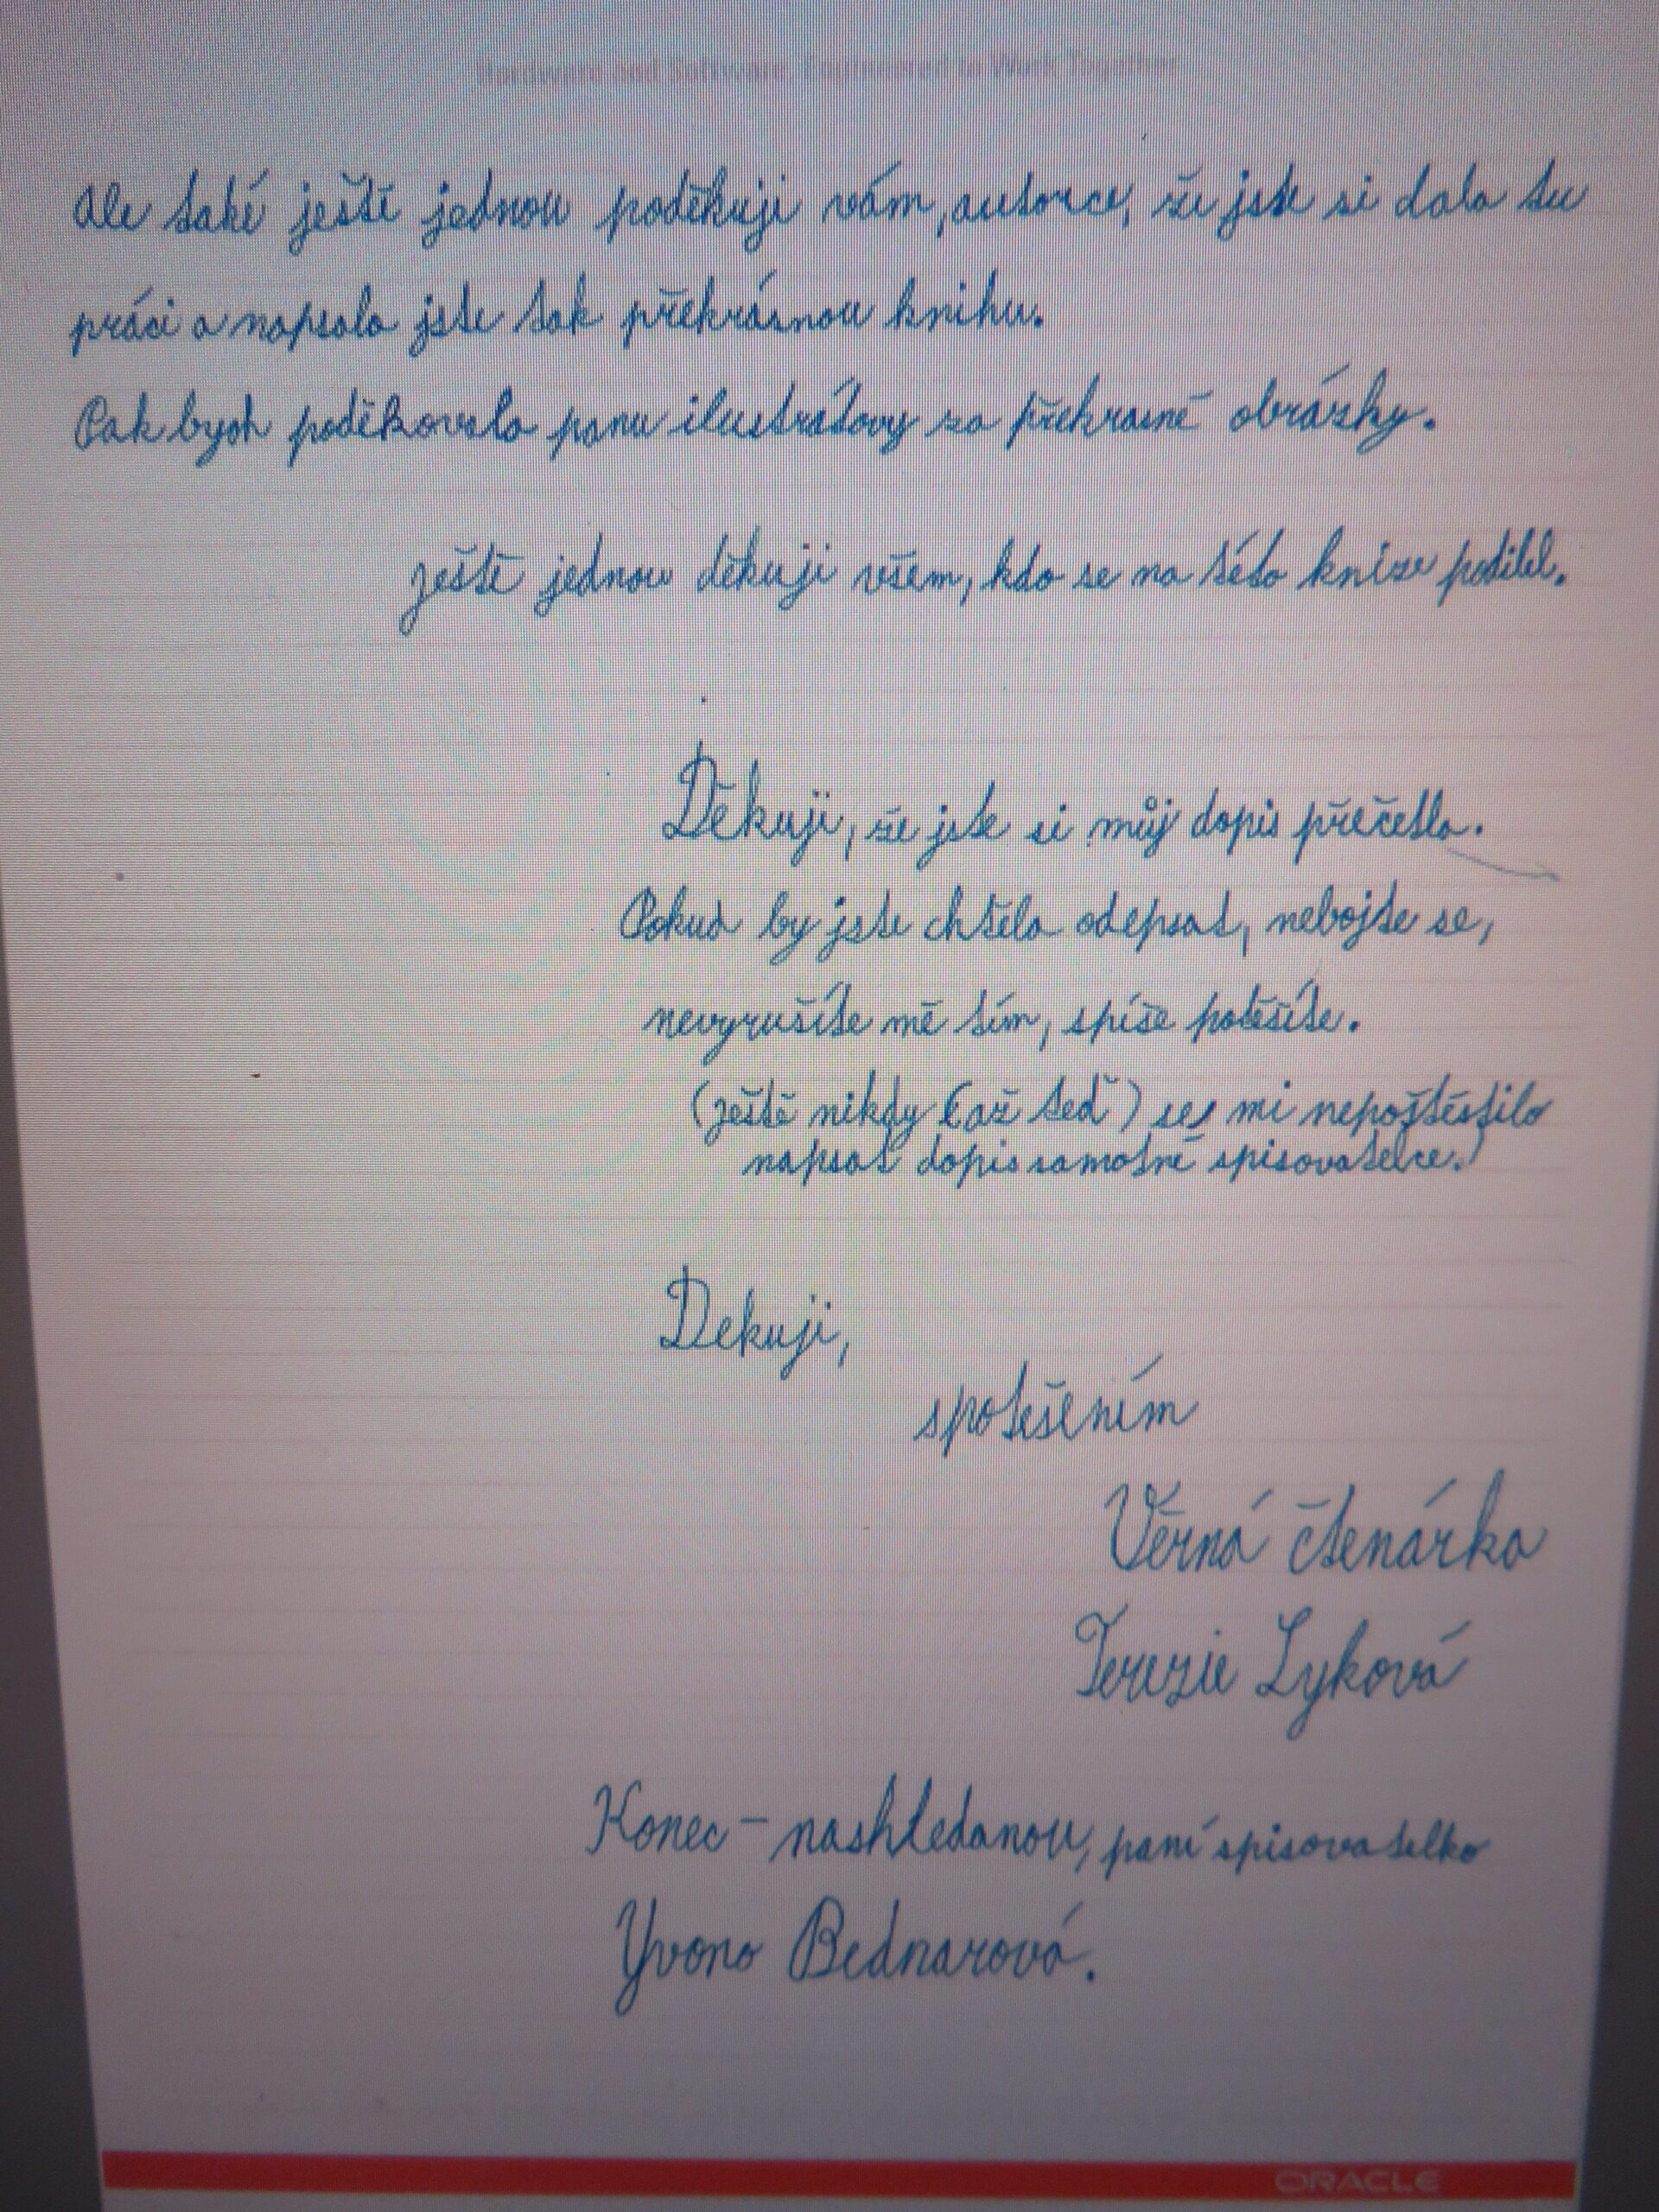 Hardware and Software, Engineered to Work Together
Ale také ještě jednou poděkuji vám, autorce, že jste si dala tu
práci a napsala jste tak překrásnou knihu.
Pak bych poděkovala panu ilustrátovy za překrasné obrázky.
ještě jednou děkuji všem, kdo se na této knize podílel.
Děkuji, že jste si můj dopis přečetla.
Pokud by jste chtěla odepsat, nebojte se,
nevyrušíte mě tím, spíše potěšíte.
(ještě nikdy (až teď) se mi nepoštěstilo
napsat dopis samotné spisovatelce.)
Dekuji,
spotěšením
Věrná čtenárka
Terezie Lyková
Konec - nashledanou, paní spisovatelko
Yvono Bednarová.
ORACLE